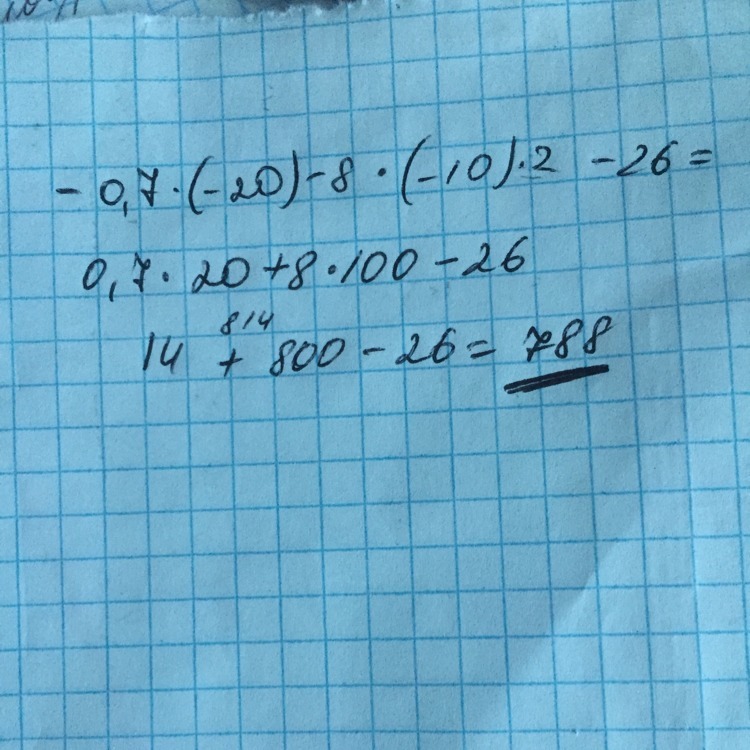 - 0,7·(-20)-8·(-10)·2 -26=
0,7·20+8·100-26
814
14 + 800-26= 788